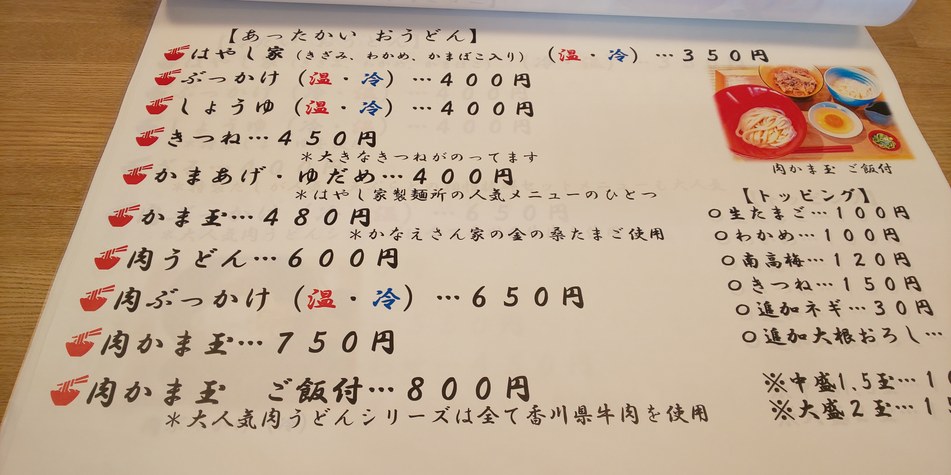 【あったかい おうどん】
はやし家（きざみ、わかめ、かまぼこ入り）（温・冷）…３５０円
ぶっかけ（温・冷）…４００円
しょうゆ（温・冷）…４００円
きつね…４５０円
＊大きなきつねがのってます
かまあげ・ゆだめ…４００円
＊はやし家製麺所の人気メニューのひとつ
かま玉…４８０円
＊かなえさん家の金の桑たまご使用
肉うどん…６００円
肉ぶっかけ（温・冷）…６５０円
肉かま玉…７５０円
肉かま玉 ご飯付…８００円
＊大人気肉うどんシリーズは全て香川県牛肉を使用
肉かま玉 ご飯付
【トッピング】
○生たまご…１００円
○わかめ…１００円
○南高梅…１２０円
○きつね…１５０円
○追加ネギ…３０円
○追加大根おろし…
※中盛1.5玉…１
※大盛２玉…１